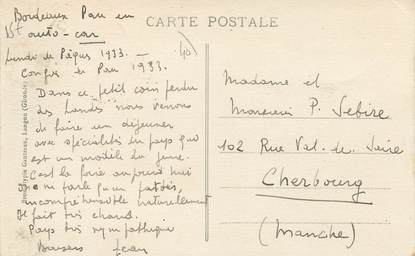 Bordeaux Pau en
auto-car
CARTE POSTALE
Lundi de Pâques 1933. —
Congrès de Pau 1933.
Dans ce petit coin perdu
des Landes nous venons
de faire un déjeuner
aux spécialités du pays qui
est un modèle du genre.
C'est la foire aujourd'hui
on parle patois,
incompréhensible naturellement
Il fait très chaud.
Pays très sympathique
Baisers Jean
Phototypie Gautreau, Langon (Gironde)
Madame et
Monsieur P. Lebire
102 Rue Val. de. Saire
Cherbourg
(Manche)